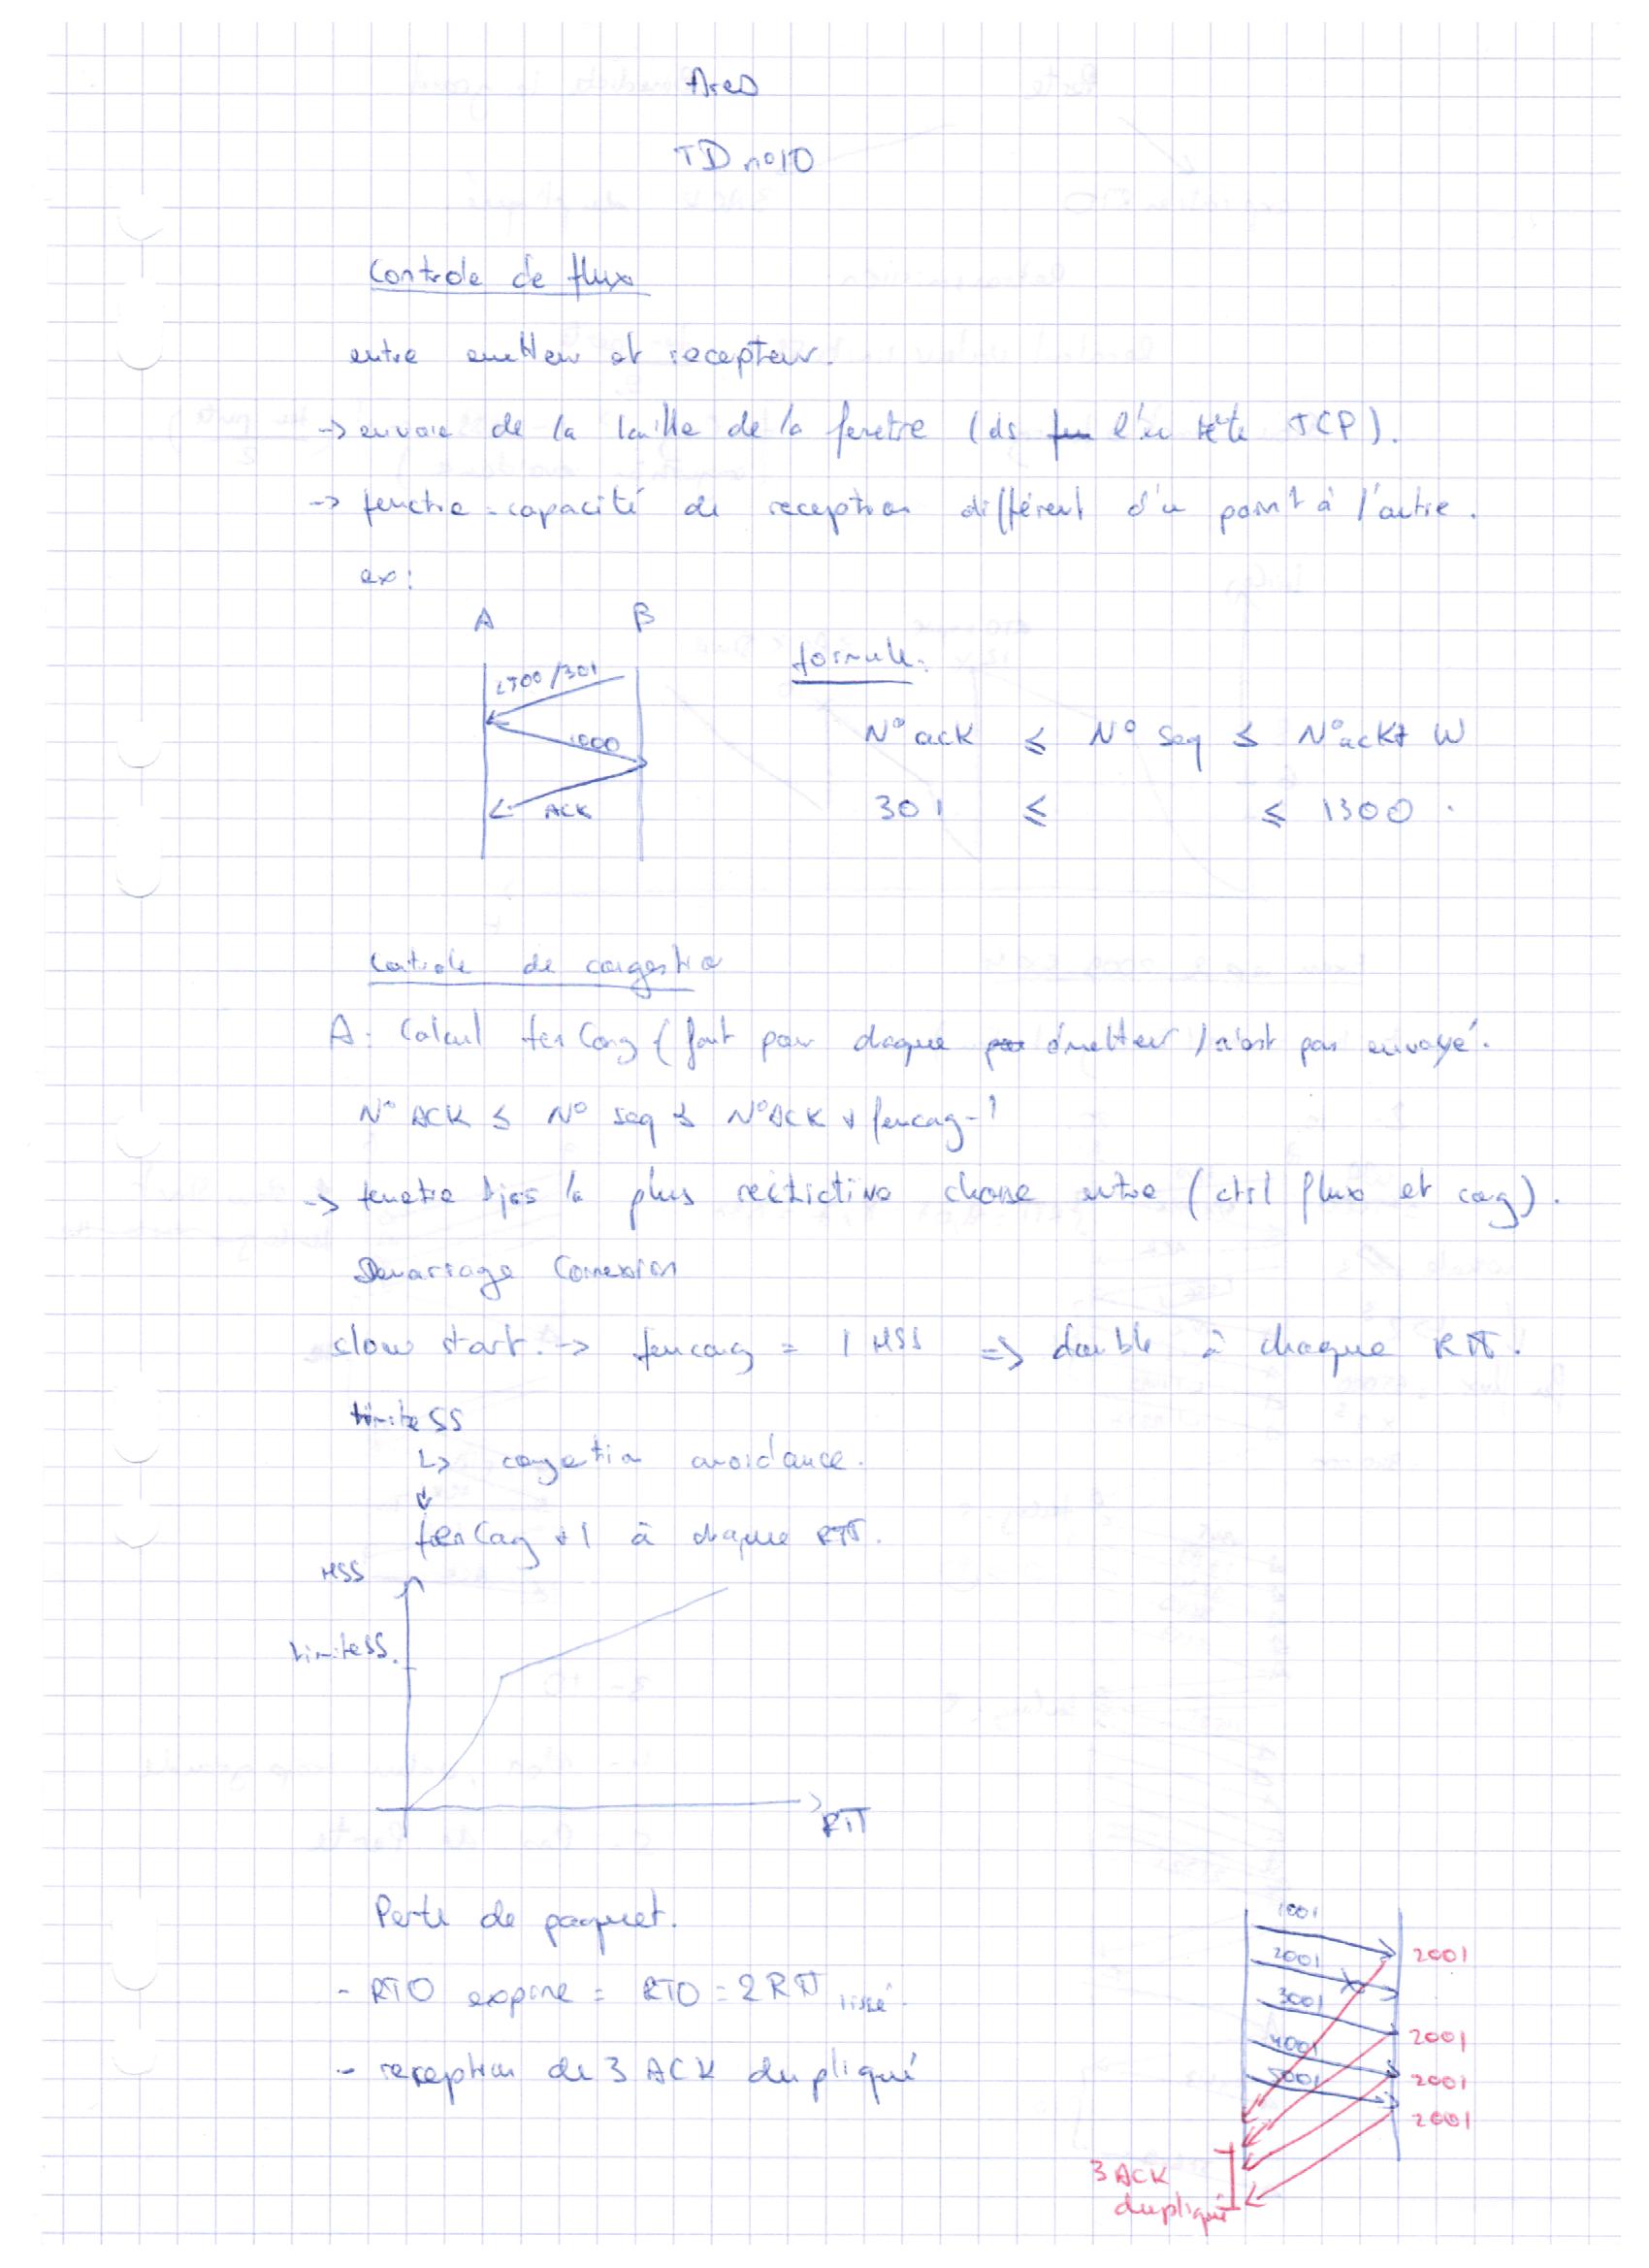 AreD
TD n°10
Controle de flux
entre emetteur et recepteur.
-> envoie de la taille de la fenetre (ds l'en tête TCP).
-> fenetre = capacité de reception différent d'un point à l'autre.
ex:
A B
/301
formule:
1000
N° ack ≤ N° seq ≤ N°ack + W
ACK
301 ≤ ≤ 1300.
Controle de congestion
A: Calcul fenCong (fait par chaque émetteur / n'est pas envoyé.
N° ACK ≤ N° seq ≤ N°ACK + fencong-1
-> fenetre tjrs la plus restrictive choisie entre (ctrl flux et cong).
Demarrage Connexion
slow start. -> fencong = 1 MSS => double à chaque RTT.
limite SS
↳ congestion avoidance.
↓
fenCong +1 à chaque RTT.
MSS
LimiteSS.
RTT
Perte de paquet.
- RTO expire = RTO = 2 RTT lissé.
- reception de 3 ACK dupliqué
1001
2001
2001
3001
4001
2001
5001
2001
2001
3 ACK
dupliqué